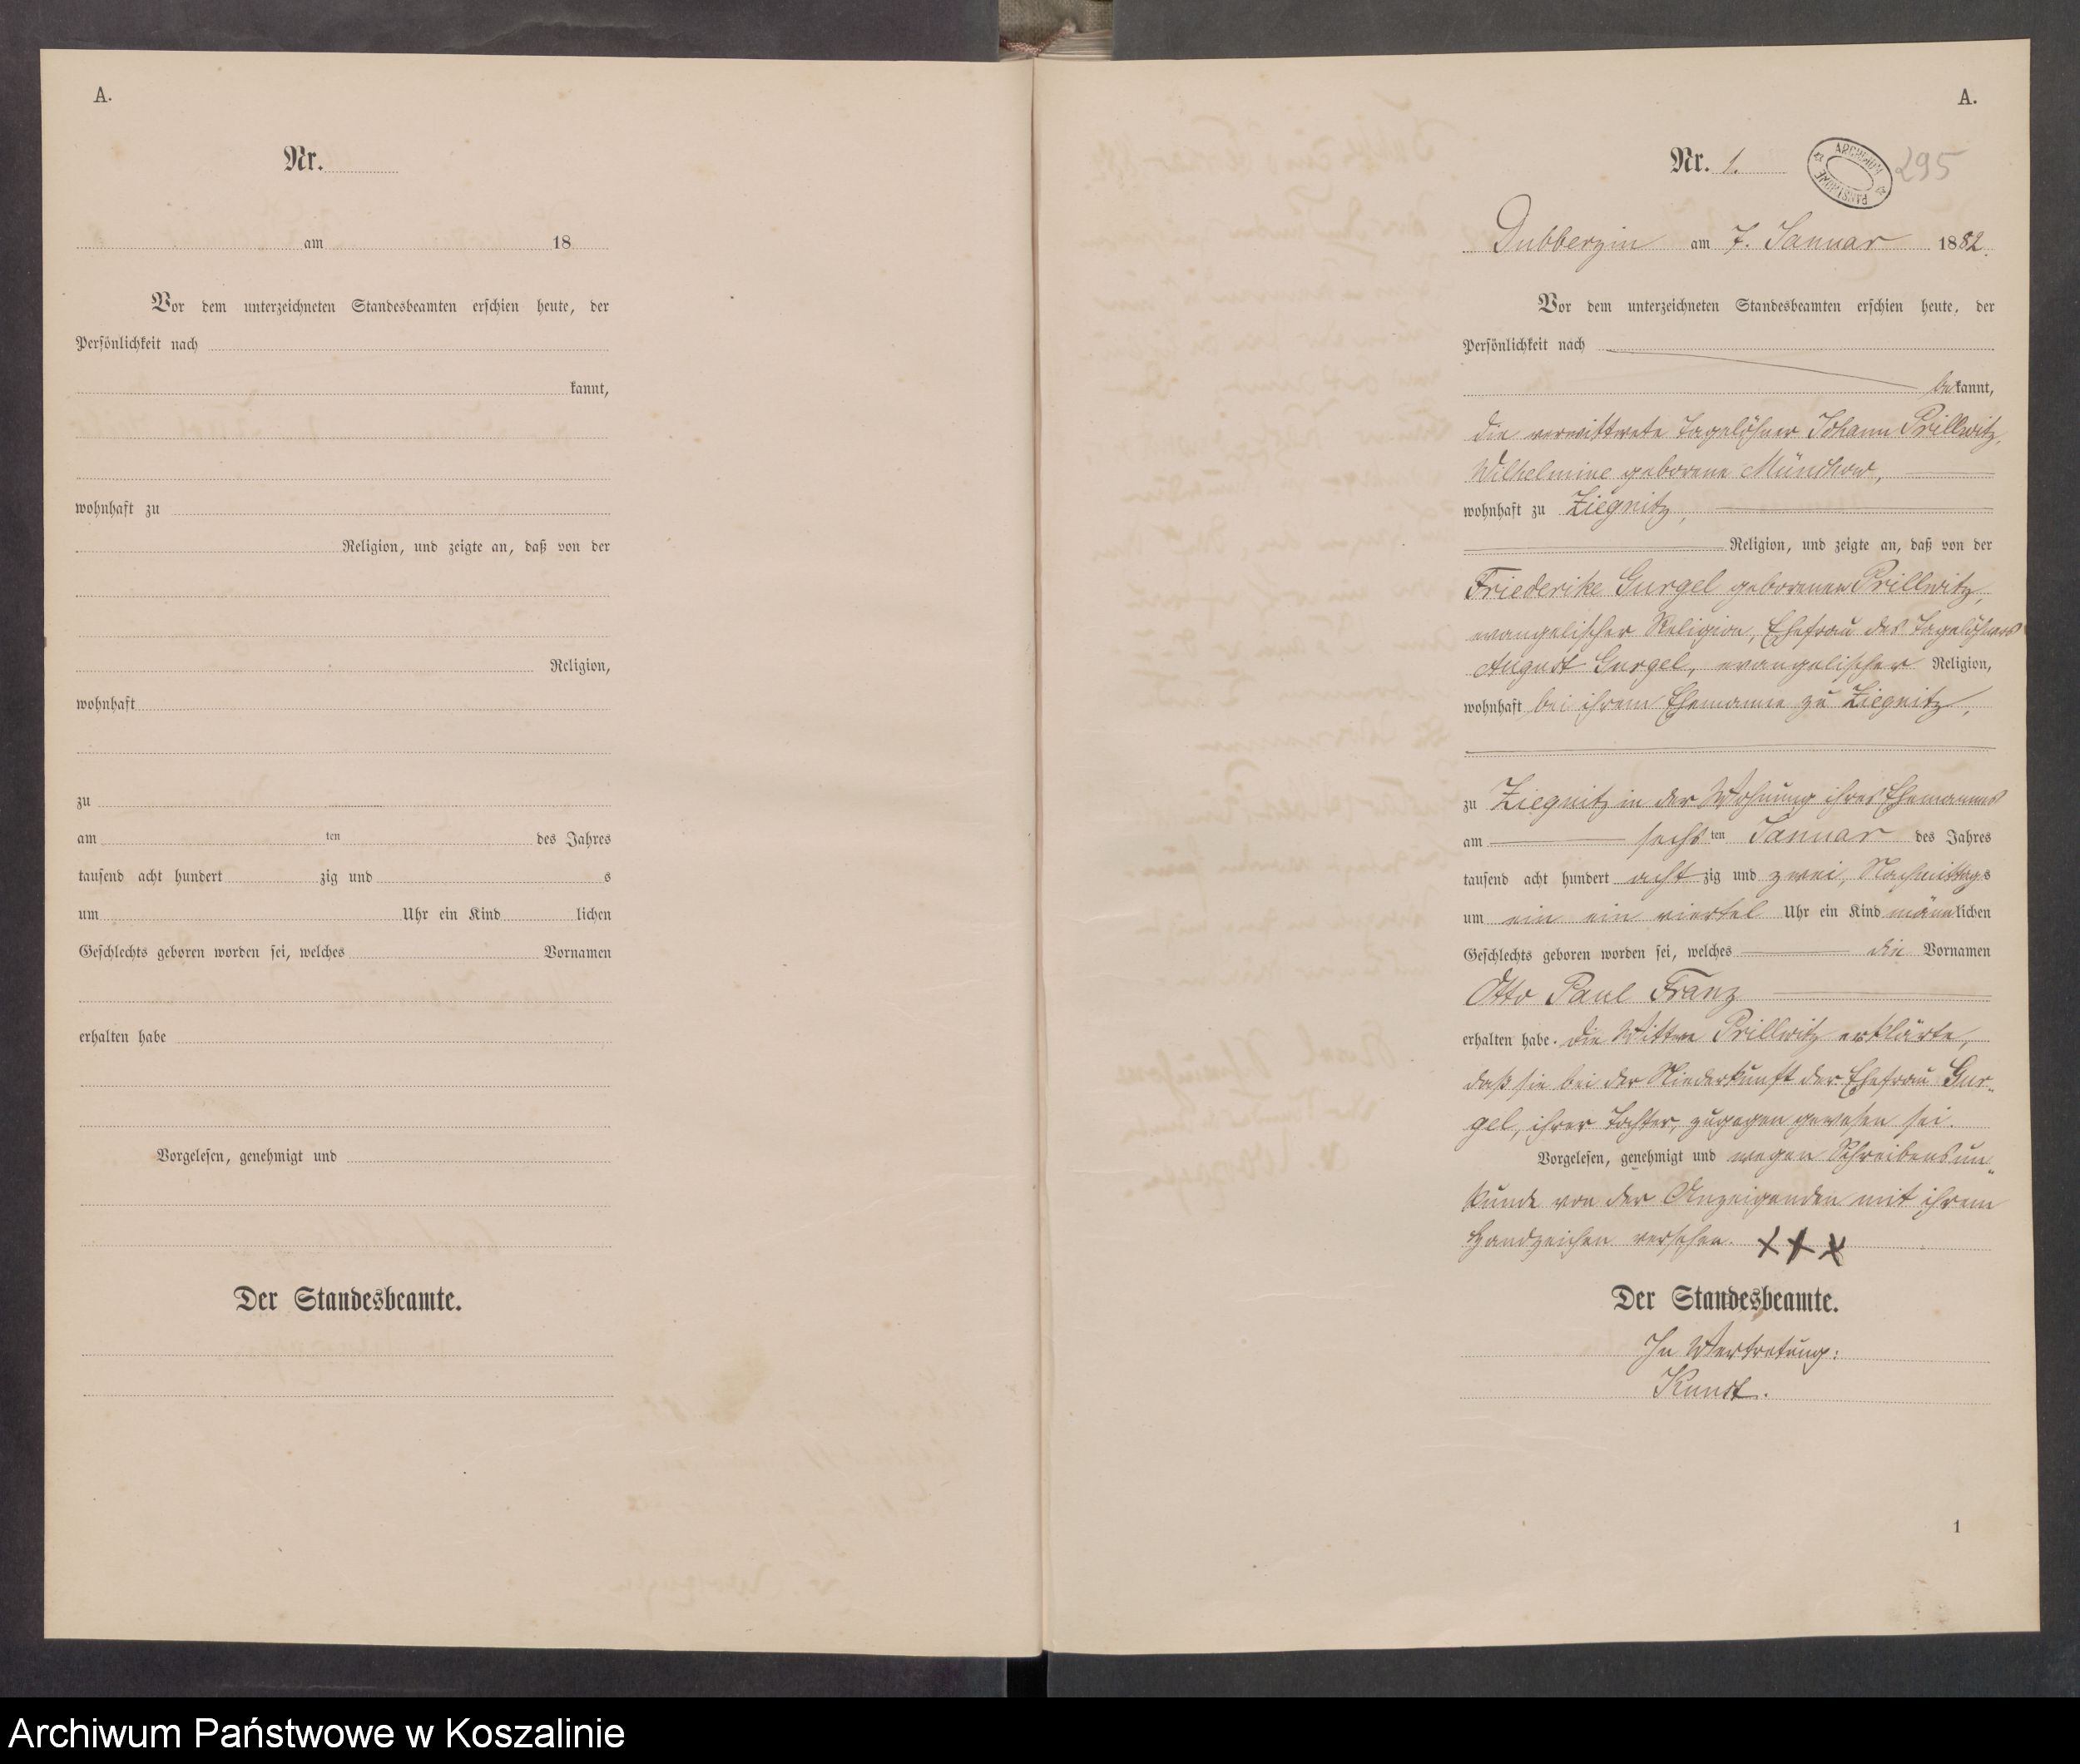 A.
Nr.
am 18
Vor dem unterzeichneten Standesbeamten erschien heute, der
Persönlichkeit nach
kannt,
wohnhaft zu
Religion, und zeigte an, daß von der
Religion,
wohnhaft
zu
am ten des Jahres
tausend acht hundert zig und s
um Uhr ein Kind lichen
Geschlechts geboren worden sei, welches Vornamen
erhalten habe
Vorgelesen, genehmigt und
Der Standesbeamte.
A.
Nr. 1.
ARCHIWUM PAŃSTWOWE
295
Dubberzin am 7. Januar 1882.
Vor dem unterzeichneten Standesbeamten erschien heute, der
Persönlichkeit nach
bekannt,
die verwittwete Tagelöhner Johann Prillwitz,
Wilhelmine geborene Münchow,
wohnhaft zu Ziegnitz,
Religion, und zeigte an, daß von der
Friederike Gurgel geborenen Prillwitz,
evangelischer Religion, Ehefrau des Tagelöhners
August Gurgel, evangelischer Religion,
wohnhaft bei ihrem Ehemanne zu Ziegnitz,
zu Ziegnitz in der Wohnung ihres Ehemannes
am sechsten Januar des Jahres
tausend acht hundert achtzig und zwei, Nachmittags
um ein ein viertel Uhr ein Kind männlichen
Geschlechts geboren worden sei, welches die Vornamen
Otto Paul Franz
erhalten habe. Die Wittwe Prillwitz erklärte,
daß sie bei der Niederkunft der Ehefrau Gur-
gel, ihrer Tochter, zugegen gewesen sei.
Vorgelesen, genehmigt und wegen Schreibensun-
kunde von der Anzeigenden mit ihrem
Handzeichen versehen. XXX
Der Standesbeamte.
In Vertretung:
Kunst.
1
Archiwum Państwowe w Koszalinie